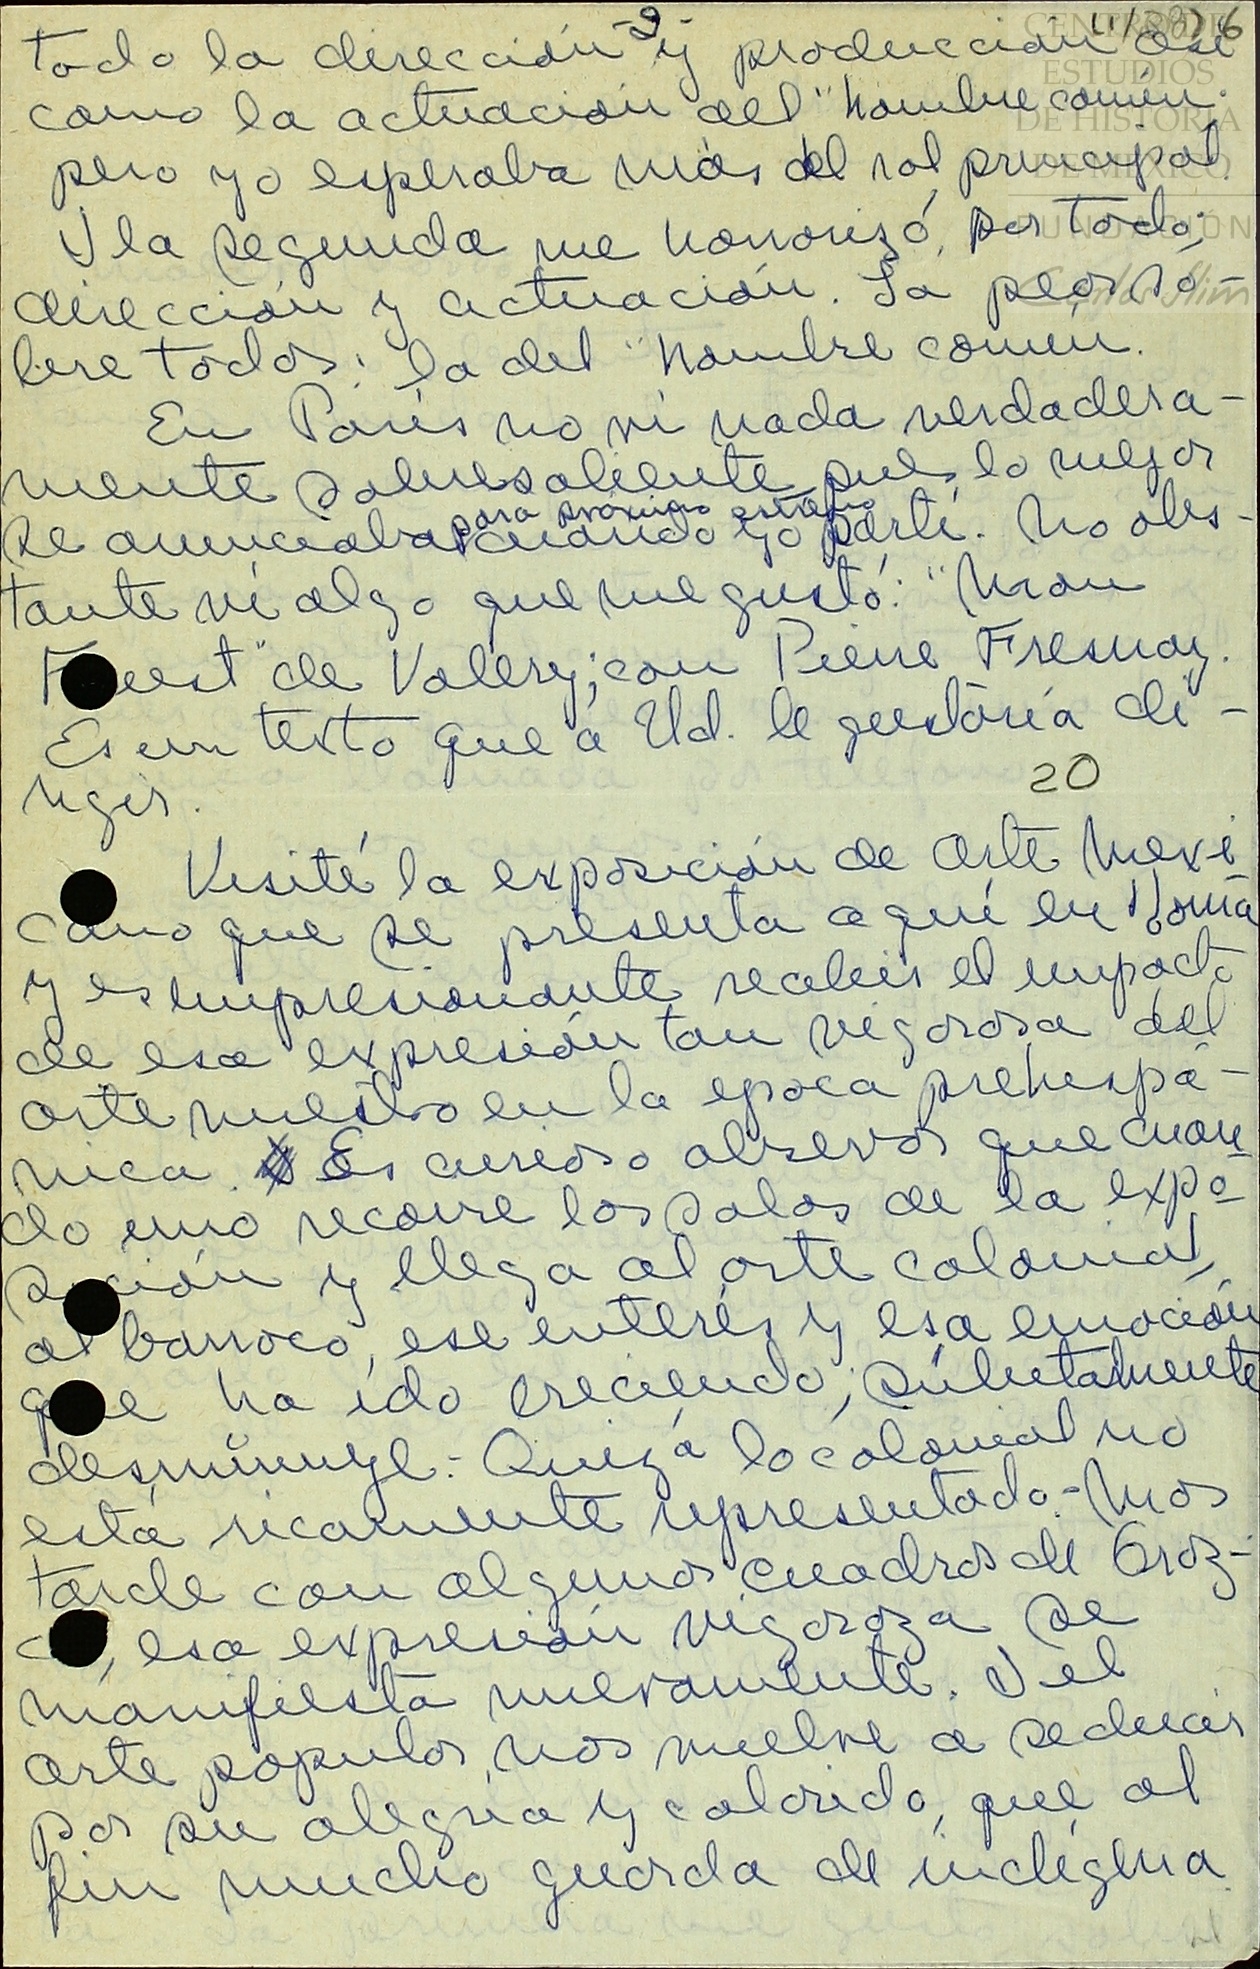 -2-
todo la dirección y producción así
como la actuación del "hombre común.
pero yo esperaba más del rol principal.
Y la segunda me horrorizó, por todo;
dirección y actuación. La peor so-
bre todos: la del "hombre común.
En París no vi nada verdadera-
mente sobresaliente pues lo mejor
para próximo estreno
se anunciaba cuando yo partí. No obs-
tante vi algo que me gustó: "Mon
Faust" de Valery; con Pierre Fresnay.
Es un texto que a Ud. le gustaría di-
rigir.
20
Visité la exposición de arte Mexi
cano que se presenta aquí en Roma
y es impresionante recibir el impacto
de esa expresión tan vigorosa del
arte nuestro en la epoca prehispá-
nica. Es curioso observar que cuan
do uno recorre las salas de la expo-
sición y llega al arte colonial,
al barroco, ese interés y esa emoción
que ha ido creciendo, súbitamente
desminuye.- Quizá lo colonial no
está ricamente representado.- Mas
tarde con algunos cuadros de Oroz-
co, esa expresión vigoroza se
manifiesta nuevamente. Y el
arte popular, nos vuelve a seducir
por su alegría y colorido, que al
fin mucho guarda de indígena
CENTRO DE
ESTUDIOS
DE HISTORIA
DE MÉXICO
FUNDACIÓN
Carlos Slim